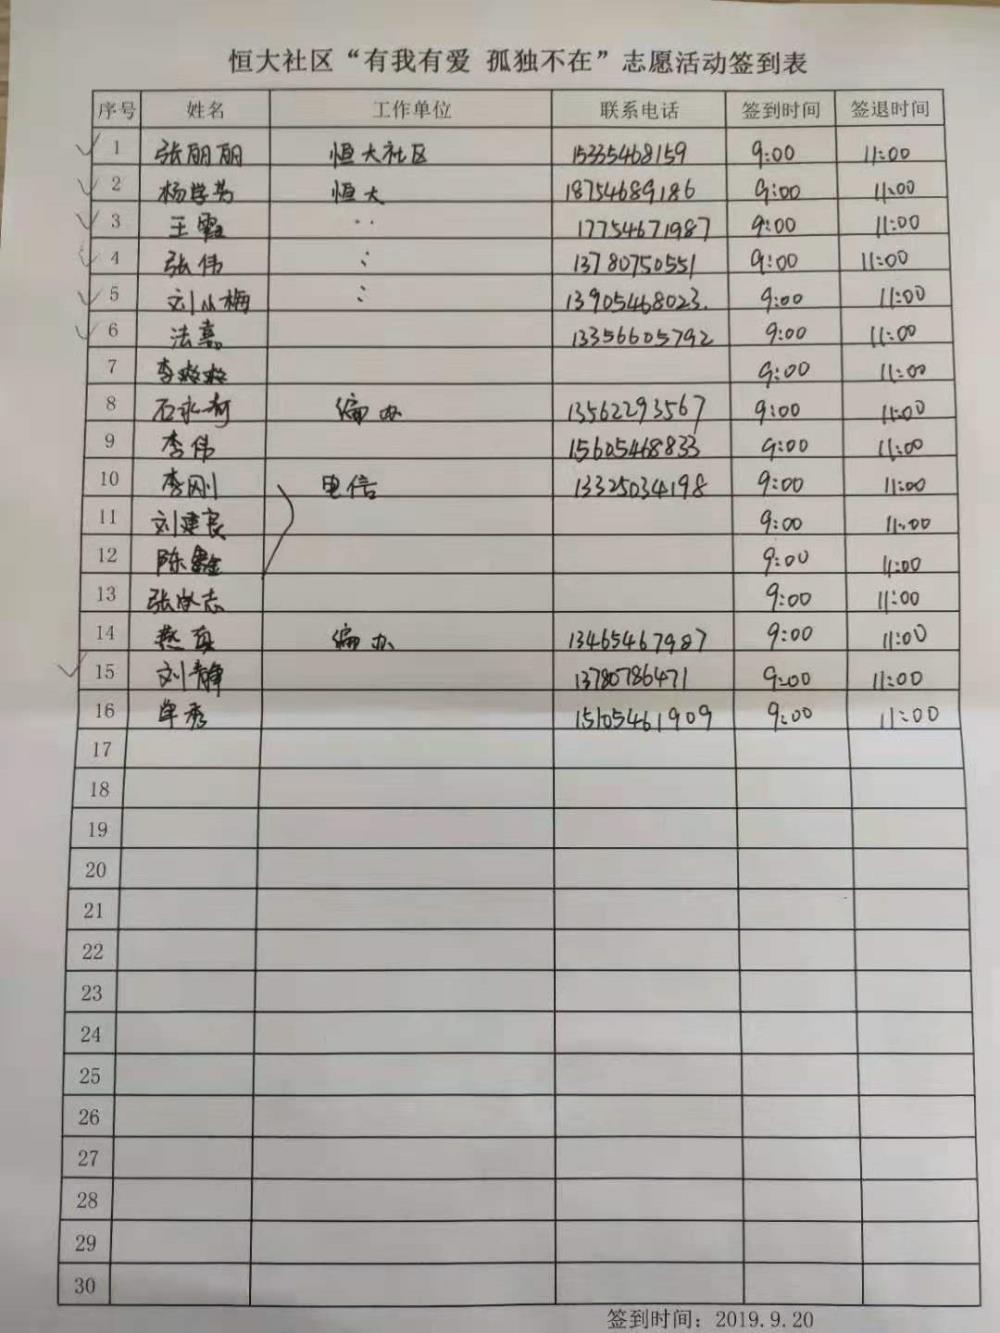 恒大社区“有我有爱 孤独不在”志愿活动签到表
序号 姓名 工作单位 联系电话 签到时间 签退时间
1 张丽丽 恒大社区 15335468159 9:00 11:00
2 恒大 18754689186 9:00 11:00
3 王霞 17754671987 9:00 11:00
4 张伟 13780750551 9:00 11:00
5 刘从梅 13905468023. 9:00 11:00
6 法嘉 13356605792 9:00 11:00
7 9:00 11:00
8 编办 13562293567 9:00 11:00
9 李伟 15605468833 9:00 11:00
10 李刚 电信 13325034198 9:00 11:00
11 刘建良 9:00 11:00
12 陈鑫 9:00 11:00
13 9:00 11:00
14 编办 13465467987 9:00 11:00
15 刘静 13780786471 9:00 11:00
16 牟秀 15105461909 9:00 11:00
17
18
19
20
21
22
23
24
25
26
27
28
29
30
签到时间：2019.9.20